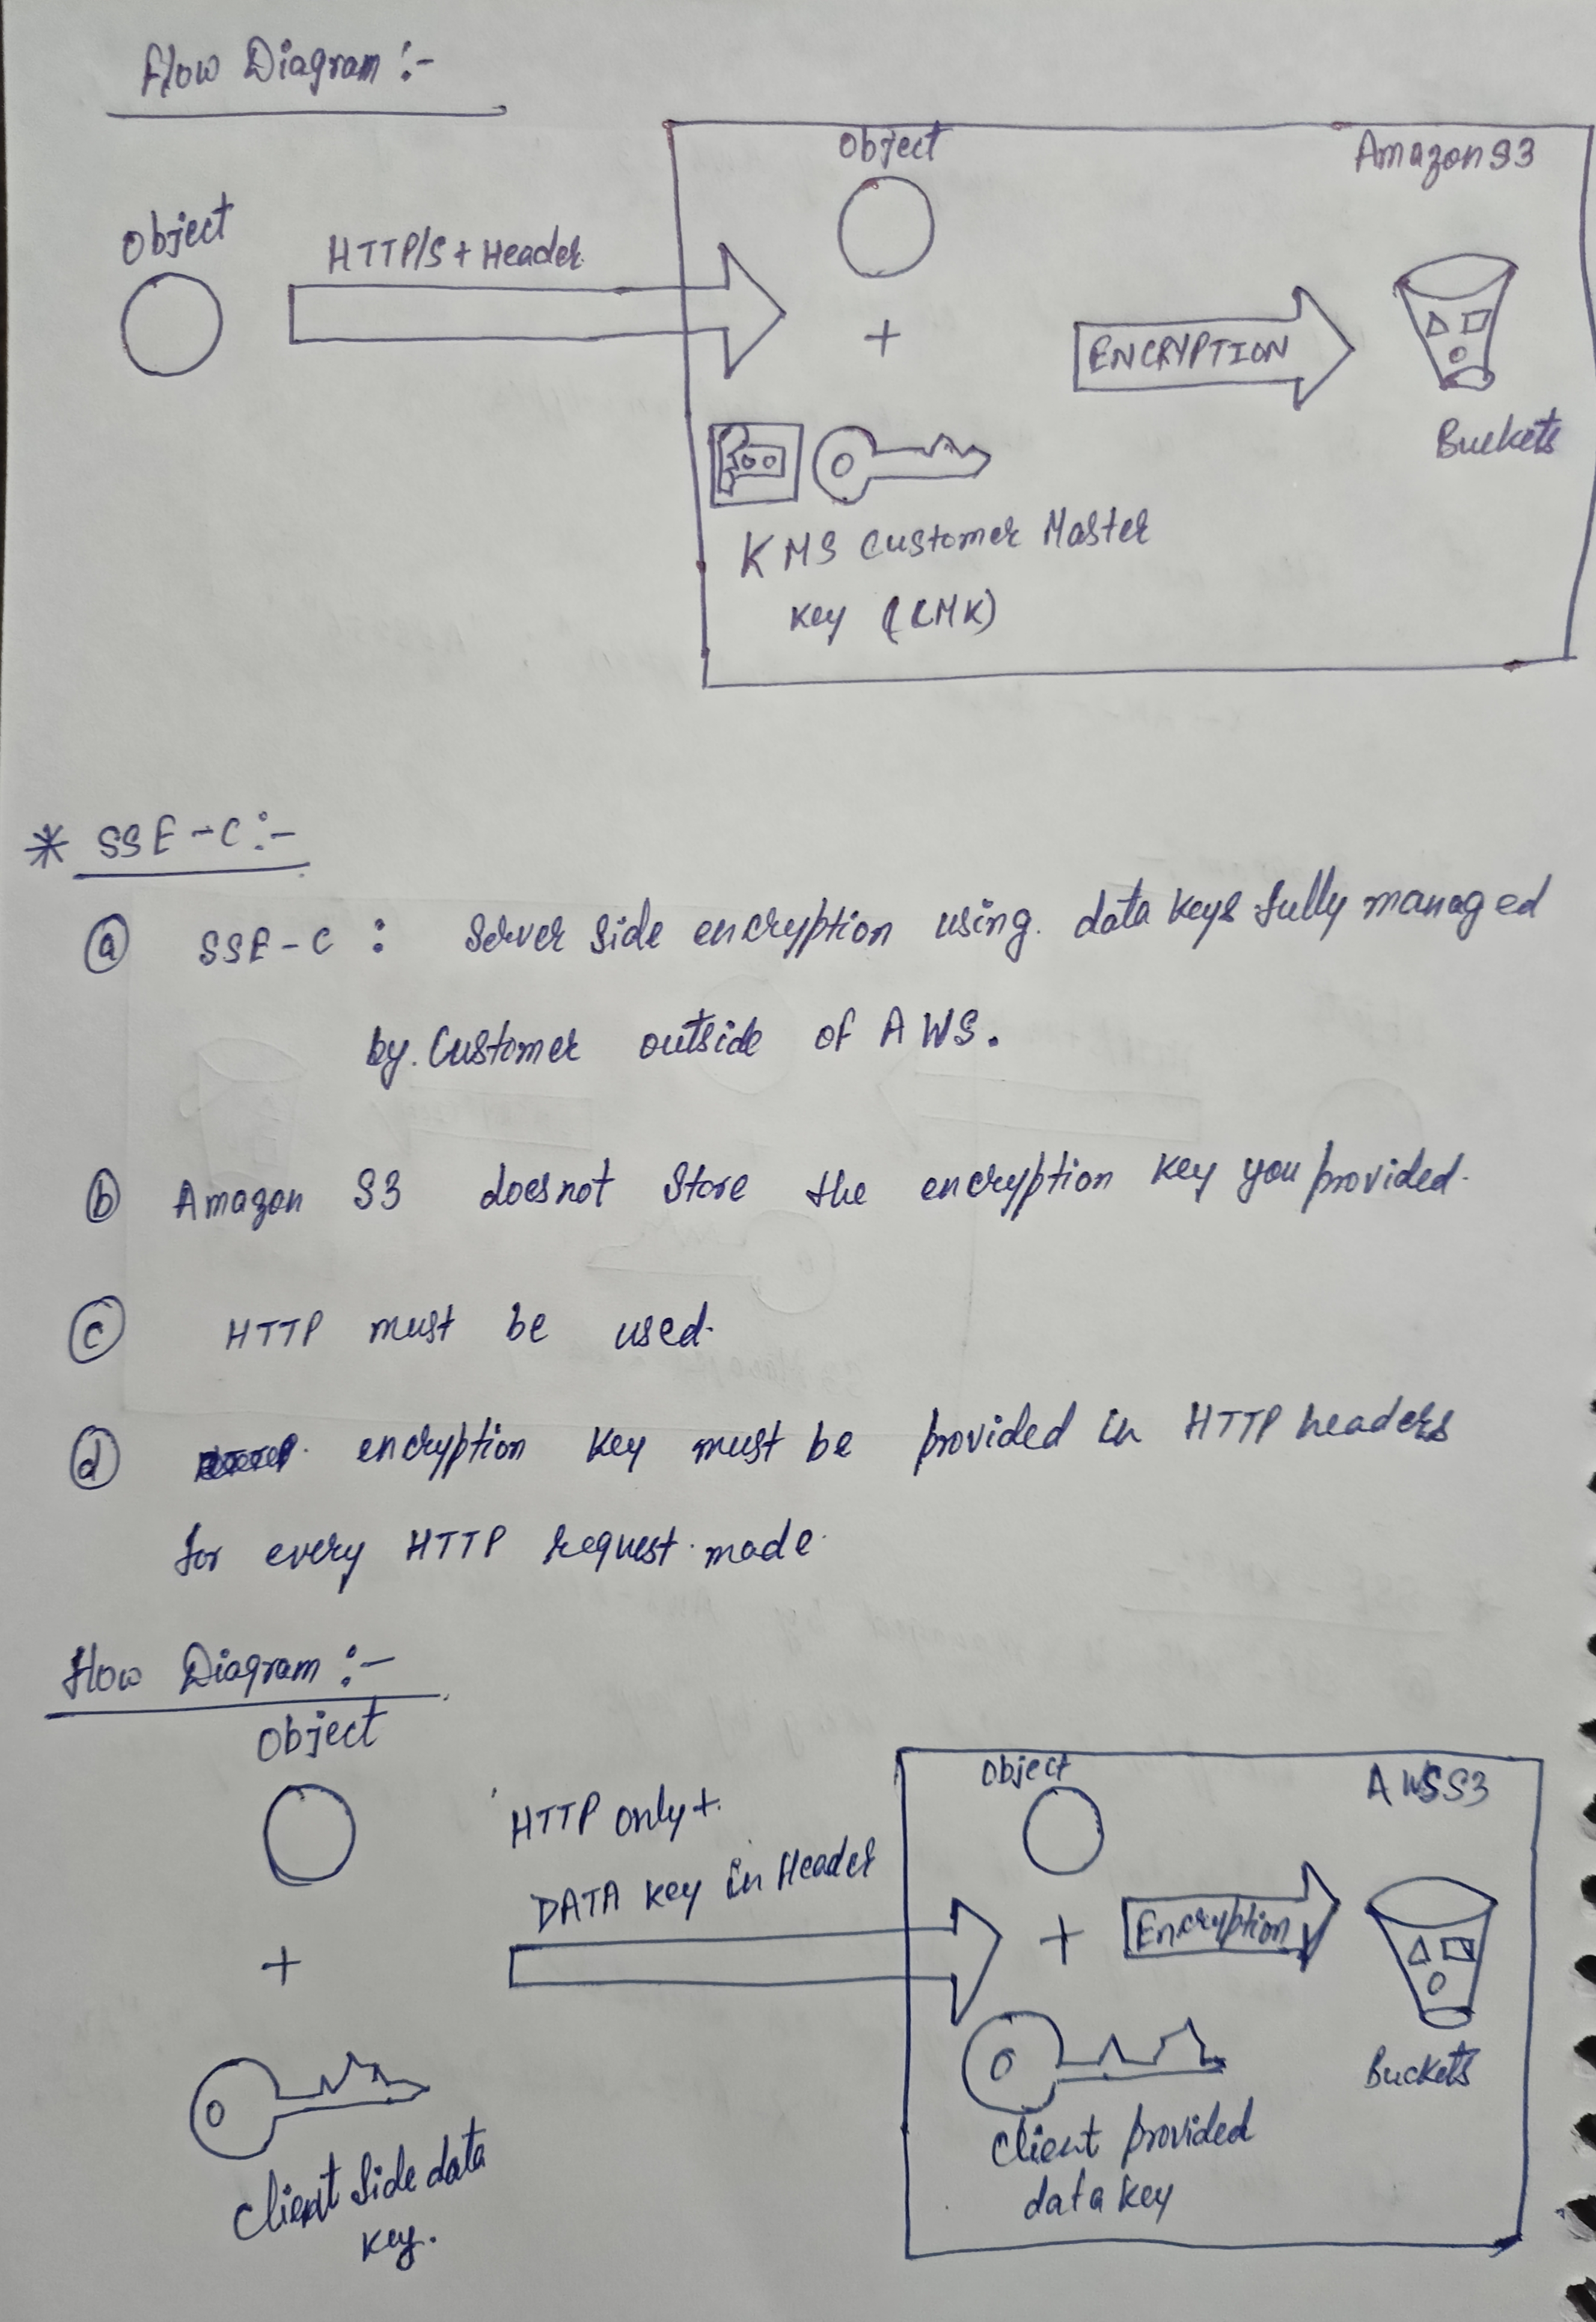 Flow Diagram :-
Object
HTTP/S + Header
Object
Amazon S3
+
ENCRYPTION
Buckets
KMS Customer Master
Key (CMK)
* SSE-C :-
(a) SSE-C : Server Side encryption using. data keys fully managed
by. Customer outside of AWS.
(b) Amazon S3 doesnot Store the encryption key you provided.
(c) HTTP must be used.
(d) encryption key must be provided in HTTP headers
for every HTTP request. made.
Flow Diagram :-
Object
+
Client Side data
key.
HTTP only +.
DATA key in Header
Object
AWS S3
+
Encryption
Buckets
Client provided
data key